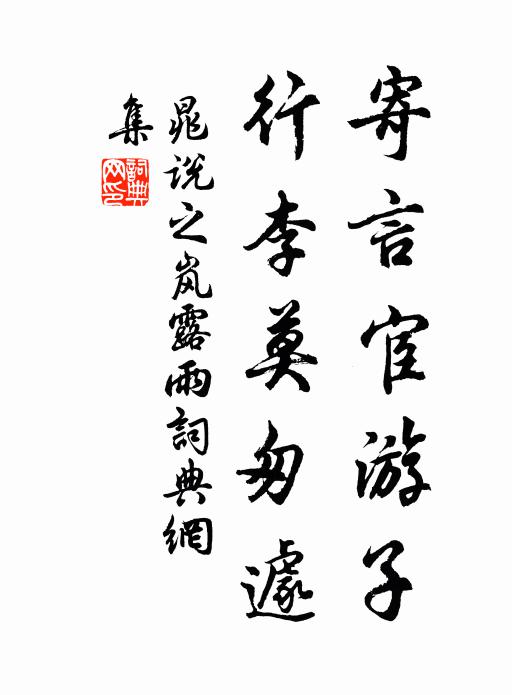 寄言宦游子
行李莫匆遽
晁说之岚露雨詞典網
集
詞典網印